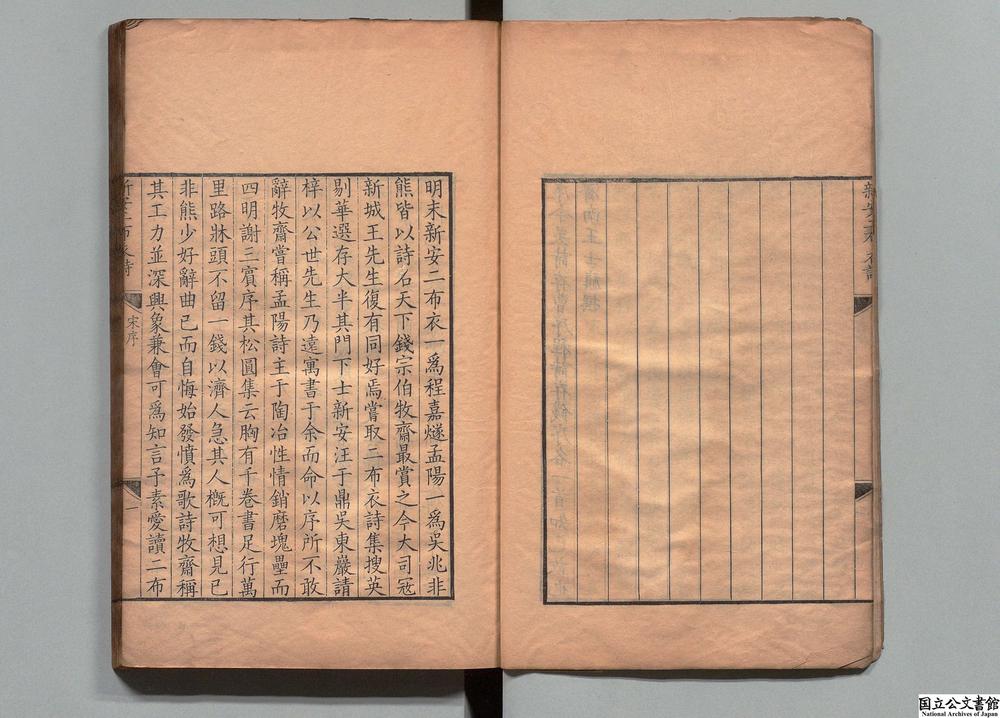 明末新安二布衣一爲程嘉燧孟陽一爲吳兆非
熊皆以詩名天下錢宗伯牧齋最賞之今大司寇
新城王先生復有同好焉嘗取二布衣詩集搜英
剔華選存大半其門下士新安汪于鼎吳東巖請
梓以公世先生乃遠寓書于余而命以序所不敢
辭牧齋嘗稱孟陽詩主于陶冶性情銷磨塊壘而
四明謝三賓序其松圓集云胸有千卷書足行萬
里路牀頭不留一錢以濟人急其人槪可想見已
非熊少好辭曲已而自悔始發憤爲歌詩牧齋稱
其工力並深興象兼會可爲知言予素愛讀二布
宋序
一
国立公文書館
National Archives of Japan